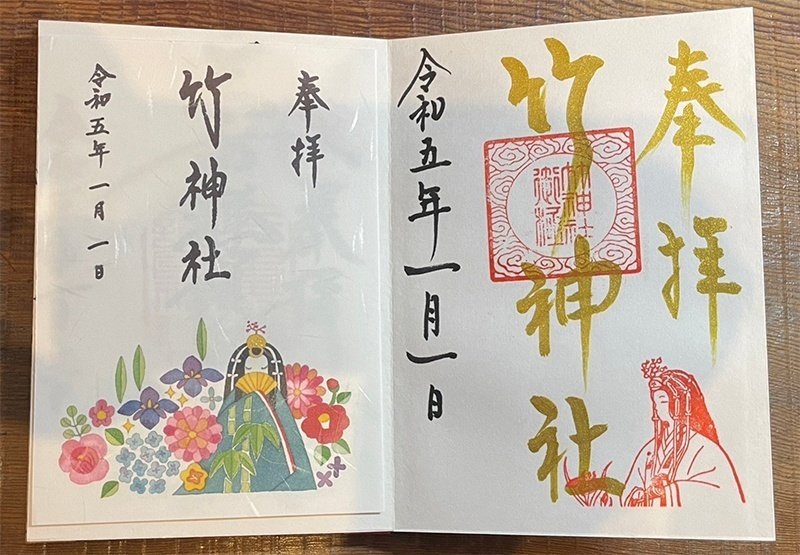 奉拝
竹神社
令和五年一月一日
奉拝
竹神社
令和五年一月一日